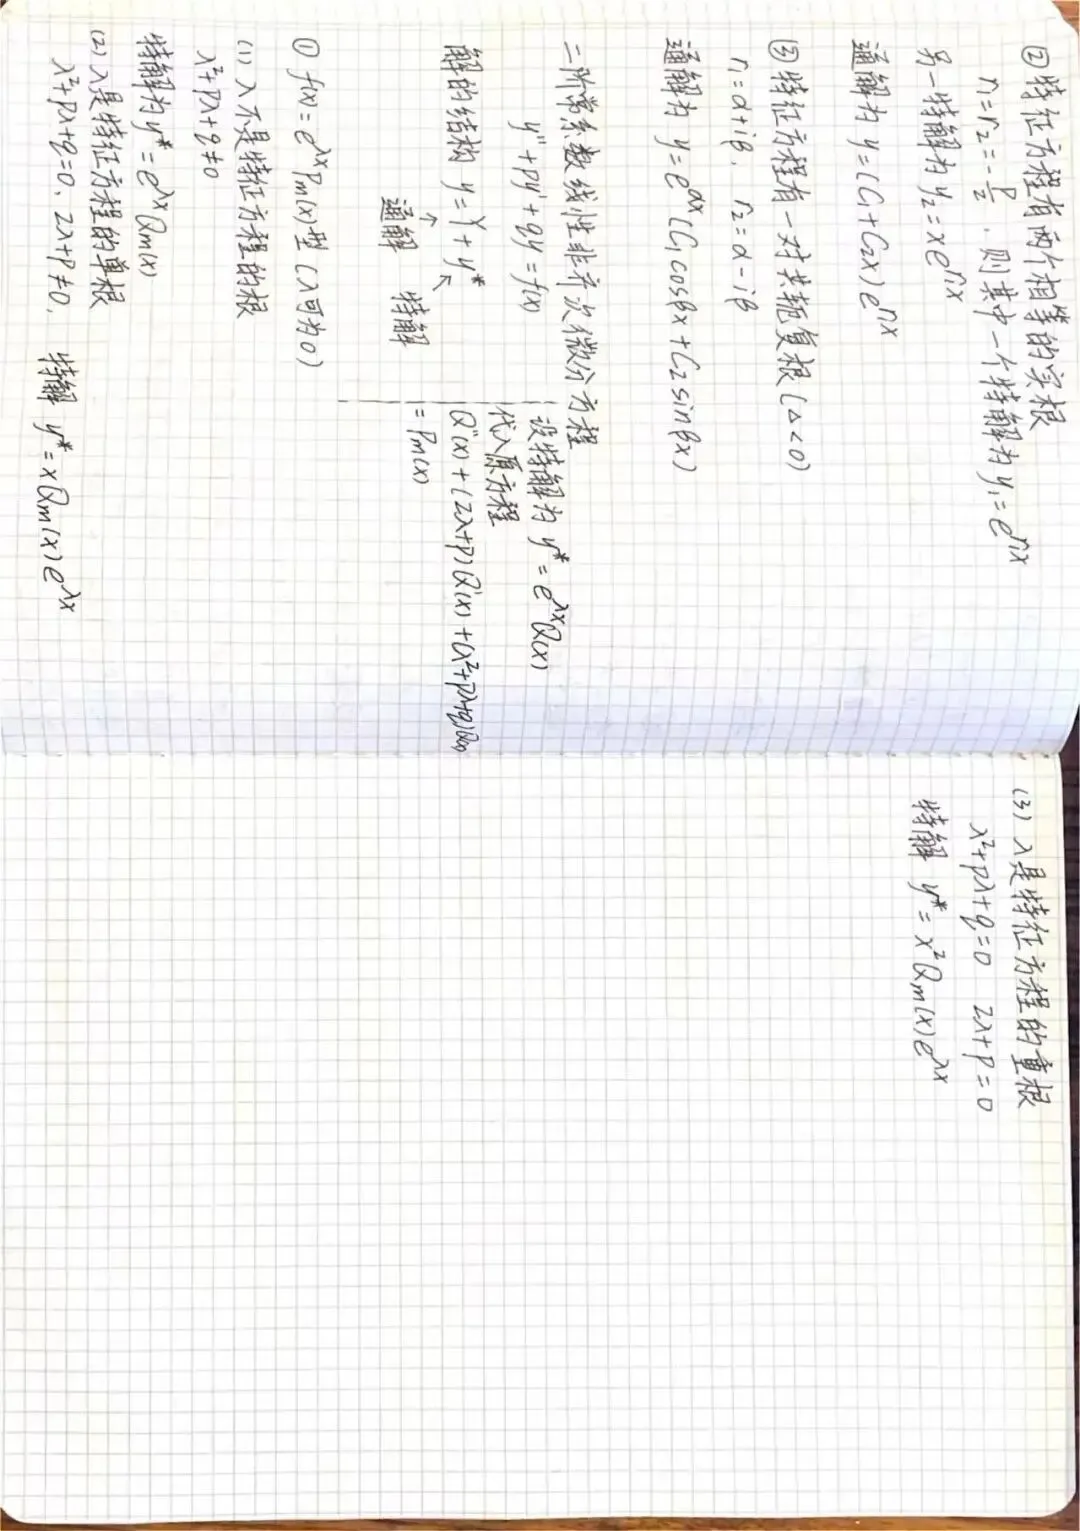 ② 特征方程有两个相等的实根
r₁=r₂=-p/2，则其中一个特解为 y₁=e^{r₁x}
另一特解为 y₂=xe^{r₁x}
通解为 y=(C₁+C₂x)e^{r₁x}
③ 特征方程有一对共轭复根(Δ<0)
r₁=α+iβ, r₂=α-iβ
通解为 y=e^{αx}(C₁cosβx+C₂sinβx)
二阶常系数线性非齐次微分方程
y''+py'+qy=f(x)
解的结构 y=Y+y*
通解 特解
设特解为 y*=e^{λx}Q(x)
代入原方程
Q''(x)+(2λ+p)Q'(x)+(λ²+pλ+q)Q(x)
=Pm(x)
① f(x)=e^{λx}Pm(x)型 (λ可为0)
(1) λ不是特征方程的根
λ²+pλ+q≠0
特解为 y*=e^{λx}Qm(x)
(2) λ是特征方程的单根
λ²+pλ+q=0, 2λ+p≠0, 特解 y*=xQm(x)e^{λx}
(3) λ是特征方程的重根
λ²+pλ+q=0 2λ+p=0
特解 y*=x²Qm(x)e^{λx}